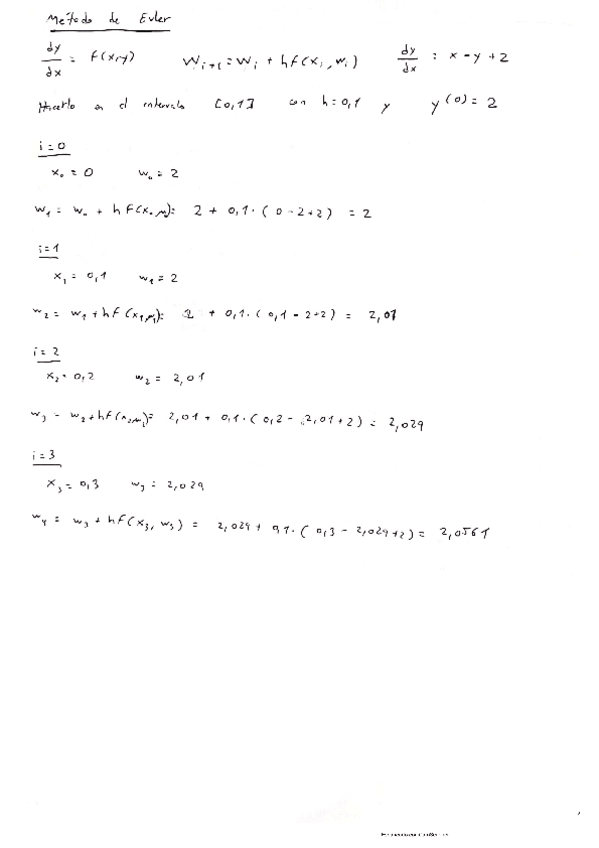 Método de Euler
dy/dx = f(x,y) W_{i+1} = W_i + hf(x_i, w_i) dy/dx : x - y + 2
Hacerlo en el intervalo [0,1] con h=0,1 y y(0) = 2
i=0
x₀ = 0 w₀ = 2
w₁ = w₀ + hf(x₀,w₀): 2 + 0,1·(0-2+2) = 2
i=1
x₁ = 0,1 w₁ = 2
w₂ = w₁ + hf(x₁,w₁): 2 + 0,1·(0,1-2+2) = 2,01
i=2
x₂ = 0,2 w₂ = 2,01
w₃ = w₂ + hf(x₂,w₂)= 2,01 + 0,1·(0,2-2,01+2) = 2,029
i=3
x₃ = 0,3 w₃ = 2,029
w₄ = w₃ + hf(x₃, w₃) = 2,029 + 0,1·(0,3-2,029+2) = 2,0561